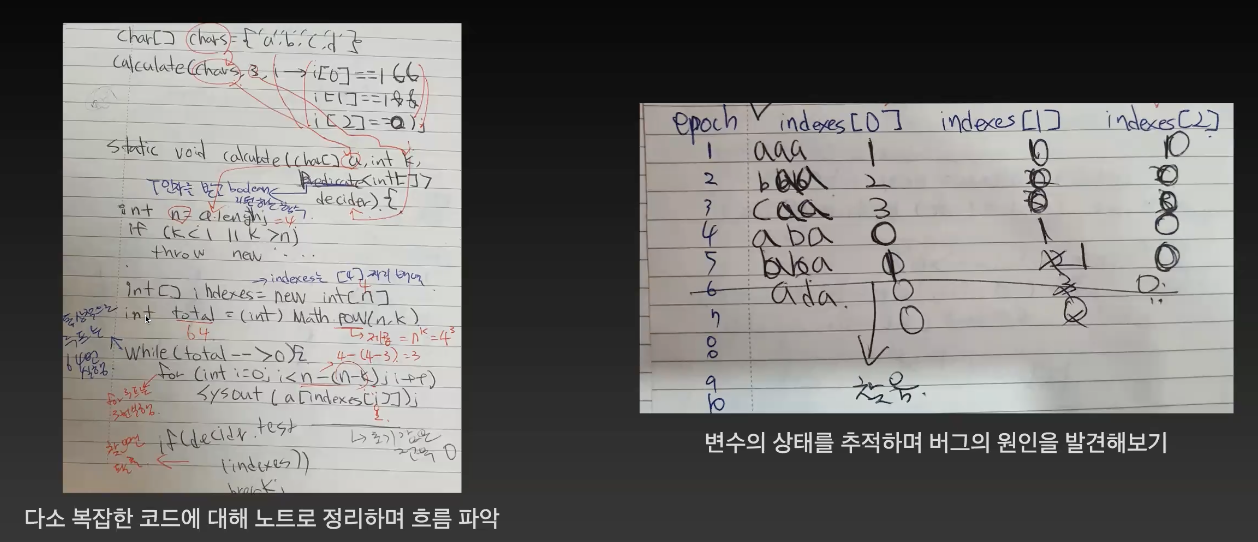 char[] chars = {'a','b','c','d'};
calculate(chars, 3, i → i[0]==1 &&
i[1]==1 &&
i[2]==0);
static void calculate(char[] a, int k,
Predicate<int[]>
decider) {
int n = a.length; =4
if (k<1 || k>n)
throw new ....
→ indexes는 [4]
int[] indexes = new int[n]
int total = (int) Math.pow(n,k)
64
→ 제곱 = n^k = 4^3
While(total-- >0){
4-(4-3)=3
for (int i=0; i<n-(n-k); i++)
sysout (a[indexes[i]]);
if(decider.test
(indexes))
break;
다소 복잡한 코드에 대해 노트로 정리하며 흐름 파악
epoch indexes[0] indexes[1] indexes[2]
1 aaa 1 0 0
2 baa 2 0 0
3 caa 3 0 0
4 aba 0 1 0
5 bba 1 1 0
6 ada. 0 0
7 0
8
9
10
변수의 상태를 추적하며 버그의 원인을 발견해보기